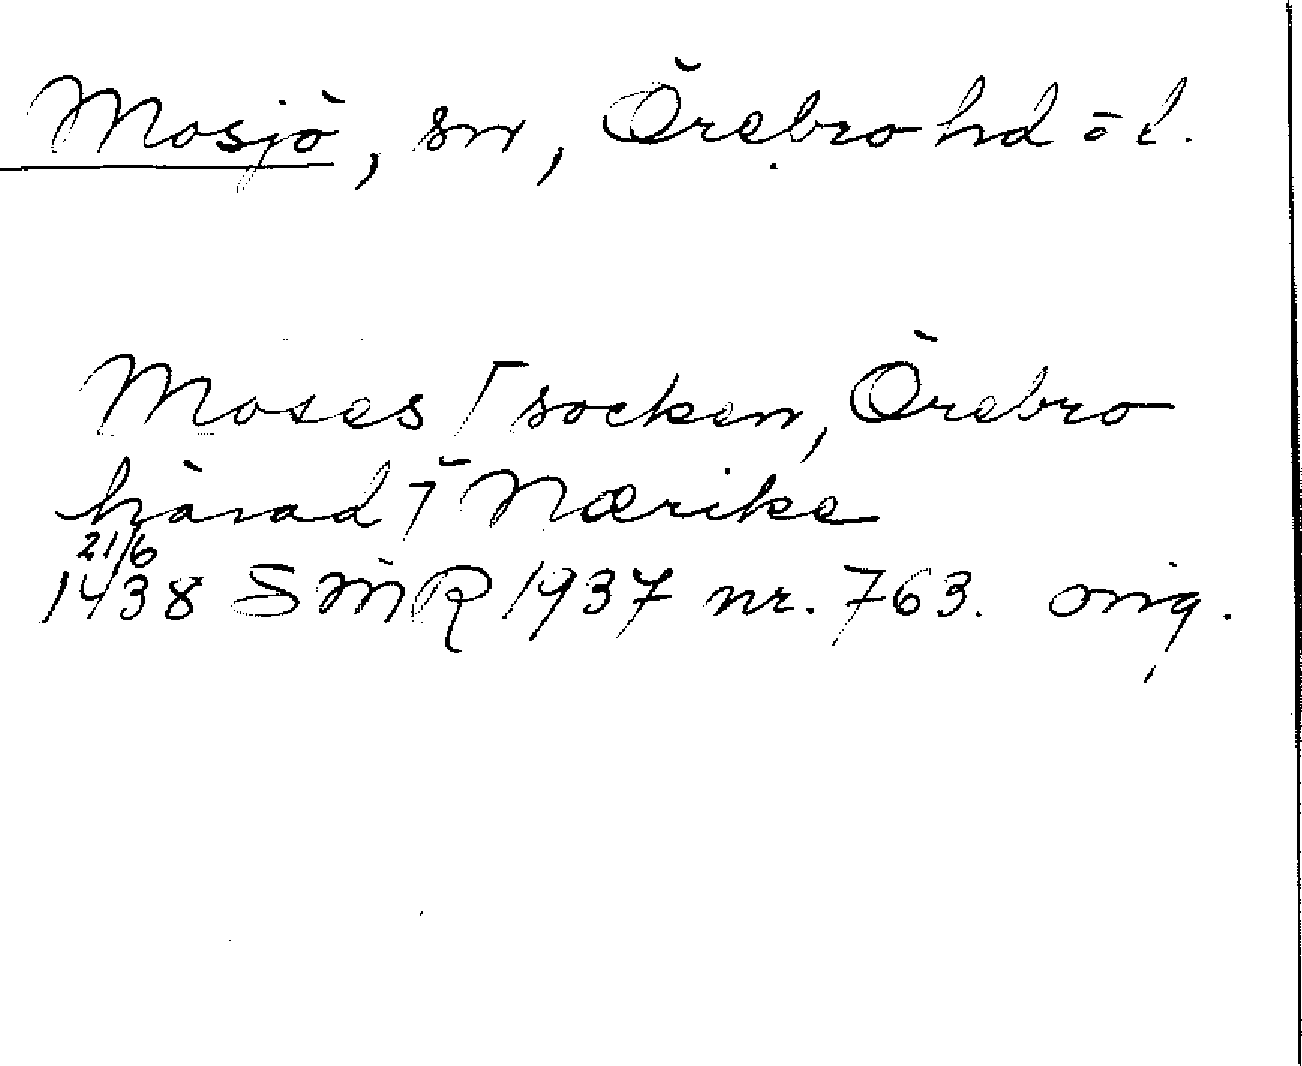 Mosjö, sn, Örebro hd ö d.
Moses [socken, Örebro
härad] Nærike
21/6
1438 SMR 1937 nr. 763. orig.